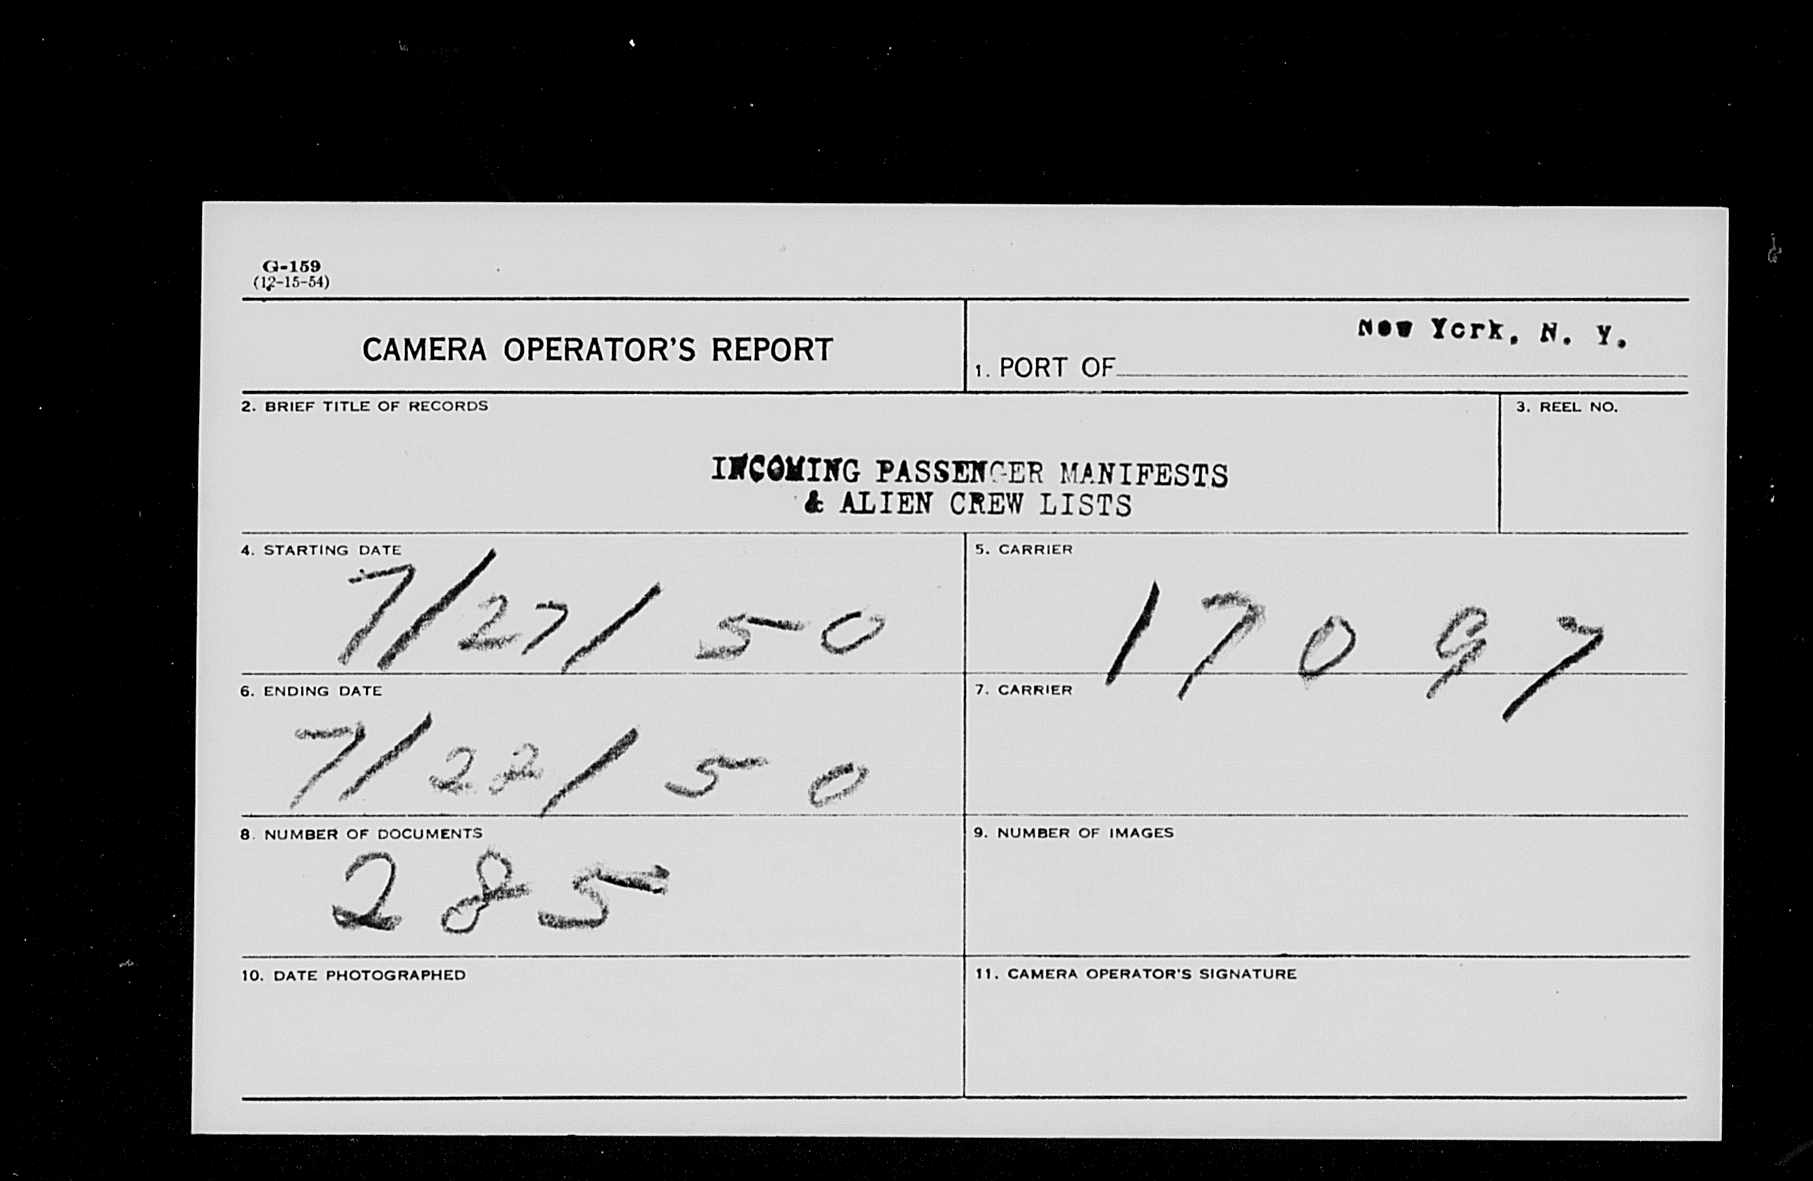 G-159
(12-15-54)
CAMERA OPERATOR'S REPORT
1. PORT OF New York, N. Y.
2. BRIEF TITLE OF RECORDS
INCOMING PASSENGER MANIFESTS
& ALIEN CREW LISTS
3. REEL NO.
4. STARTING DATE
7/27/50
5. CARRIER
17097
6. ENDING DATE
7/28/50
7. CARRIER
8. NUMBER OF DOCUMENTS
285
9. NUMBER OF IMAGES
10. DATE PHOTOGRAPHED
11. CAMERA OPERATOR'S SIGNATURE